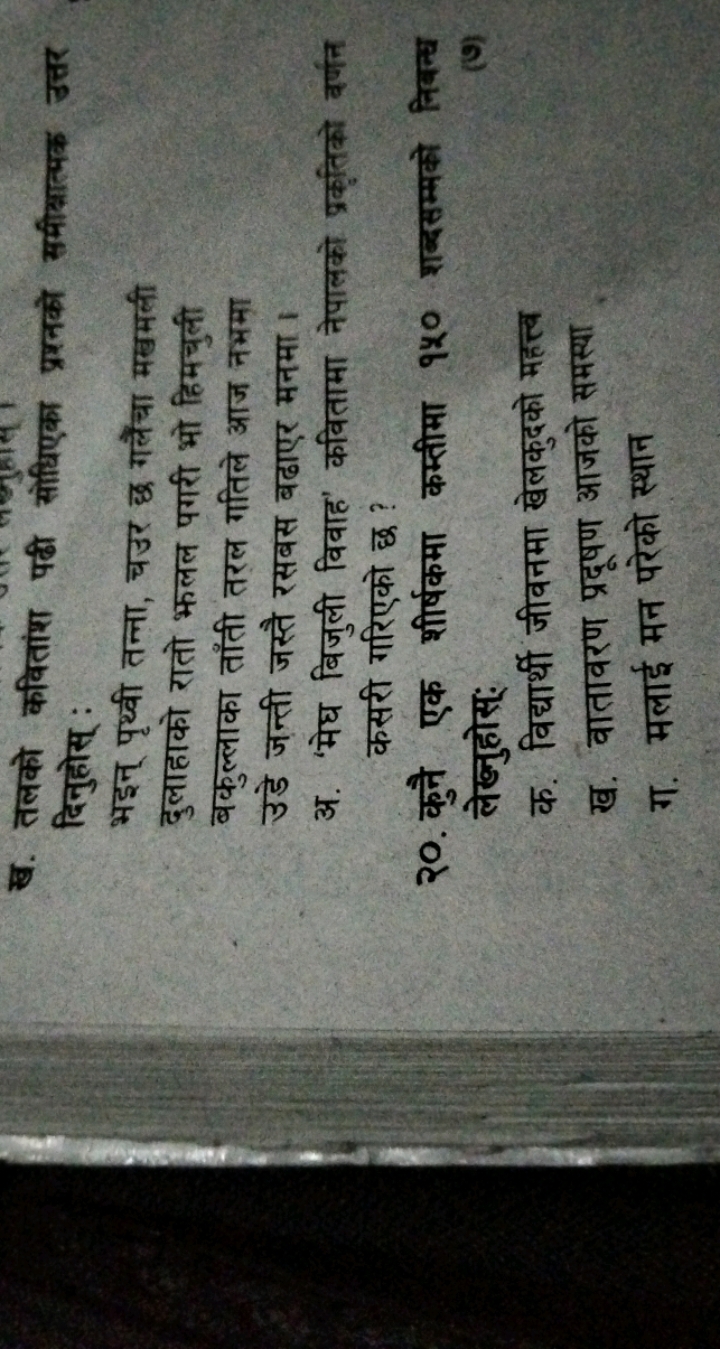 ख. तलको कवितांश पढी सोधिएका प्रश्नको समीक्षात्मक उत्तर
दिनुहोस् :
भइन् पृथ्वी तन्ना, चउर छ गलैंचा मखमली
दुलाहाको रातो झलल पगरी भो हिमचुली
बकुल्लाका ताँती तरल गतिले आज नभमा
उडे जन्ती जस्तै रसबस बढाएर मनमा ।
अ. 'मेघ बिजुली विवाह' कवितामा नेपालको प्रकृतिको वर्णन
कसरी गरिएको छ ?
२०. कुनै एक शीर्षकमा कम्तीमा १५० शब्दसम्मको निबन्ध
लेख्नुहोस्: (७)
क. विद्यार्थी जीवनमा खेलकुदको महत्त्व
ख. वातावरण प्रदूषण आजको समस्या
ग. मलाई मन परेको स्थान